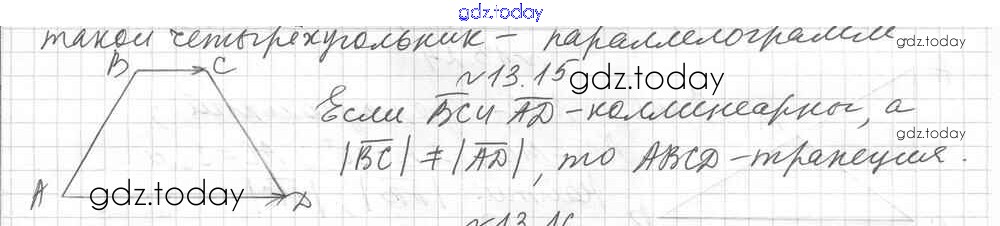 gdz.today
такой четырёхугольник - параллелограмм
gdz.today
B C
№13.15
gdz.today
Если BC и AD - коллинеарны, а
gdz.today
|BC| ≠ |AD|, то ABCD - трапеция.
A D
gdz.today
gdz.today
№13.16